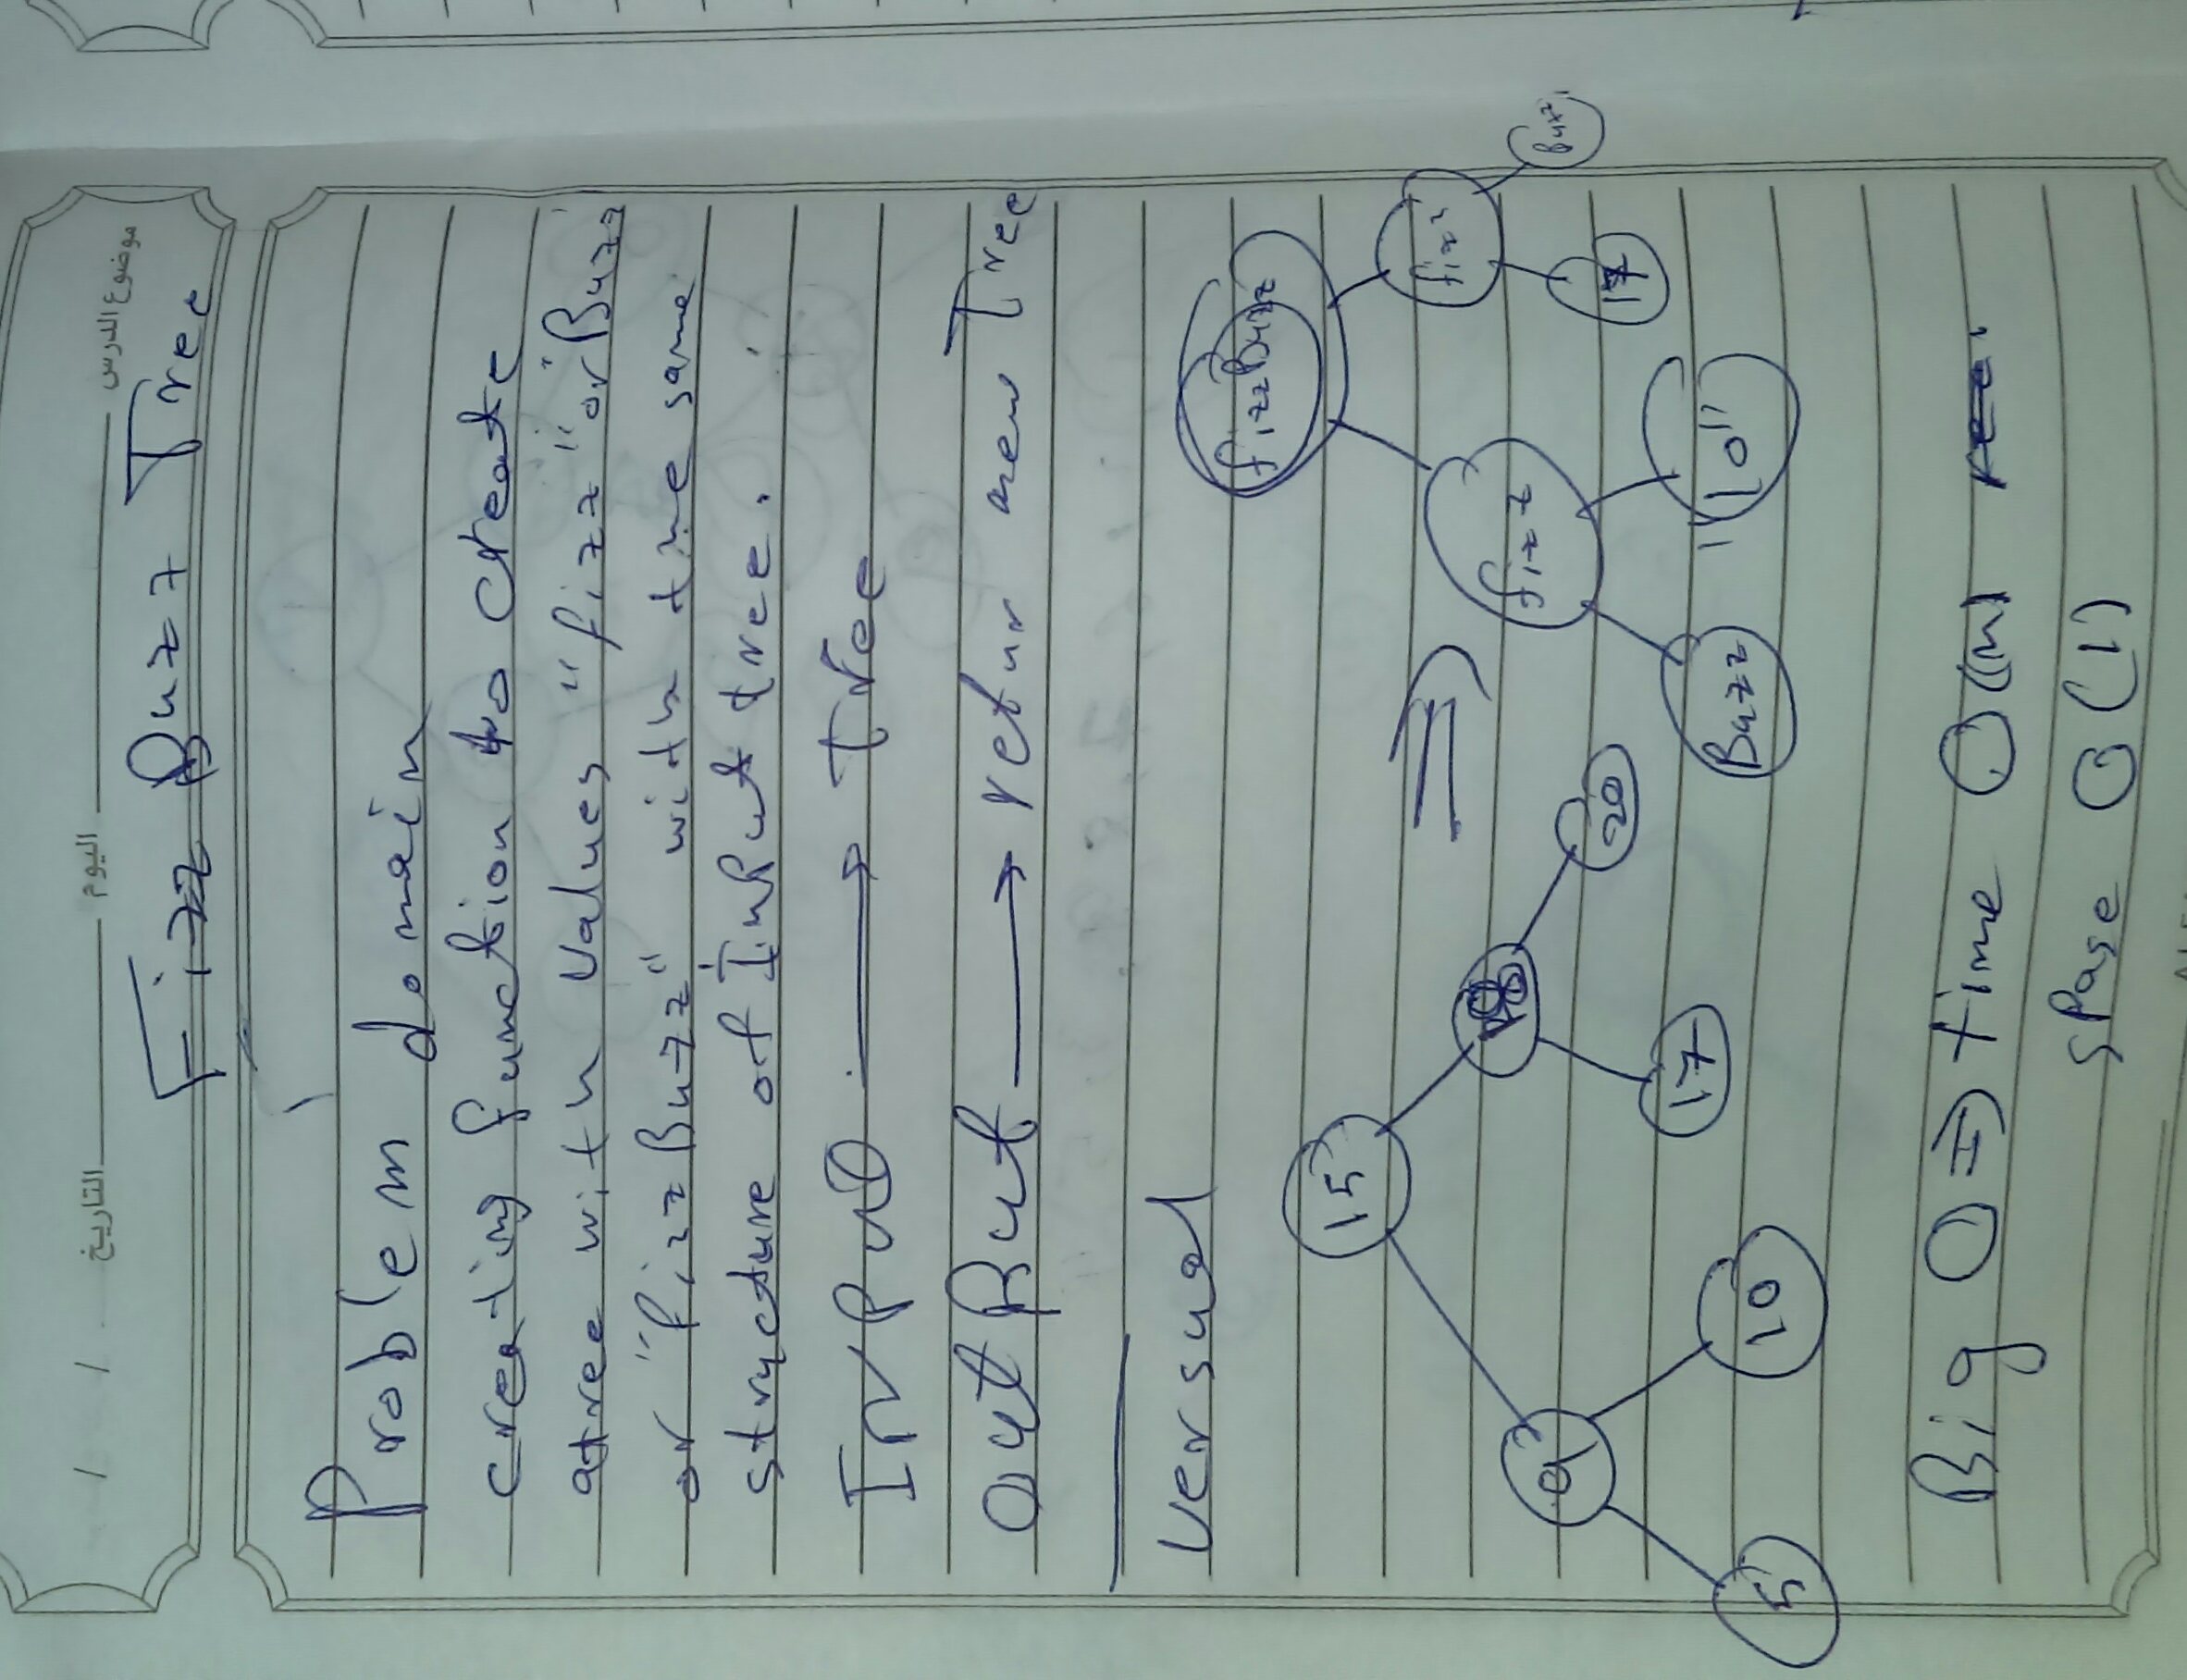 التاريخ / / اليوم موضوع الدرس
Fizz Buzz Tree
Problem domain
creating function to create
atree with values "fizz" or "Buzz
or "fizzBuzz" with the same
structure of Input tree.
InPut → Tree
OutPut → retur new Tree
Versual
15
9
5
10
17
20
⇒
fizzBuzz
fizz
fizz
Buzz
"10"
17
Buzz
Big O ⇒ time O(n)
spase O(1)